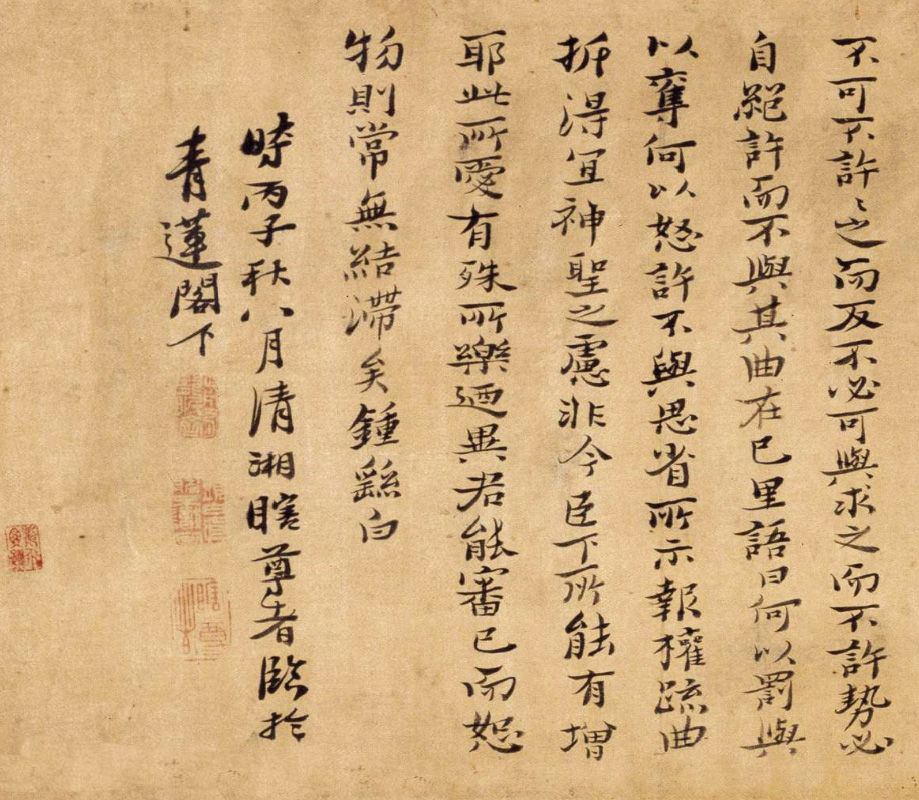 不可不許〻之而反不必可與求之而不許勢必
自絕許而不與其曲在己里語曰何以罰與
以奪何以怒許不與思省所示報權疏曲
折得宜神聖之慮非今臣下所能有增
耶此所愛有殊所樂迺異君能審己而恕
物則常無結滯矣鍾繇白
時丙子秋八月清湘瞎尊者臨於
青蓮閣下